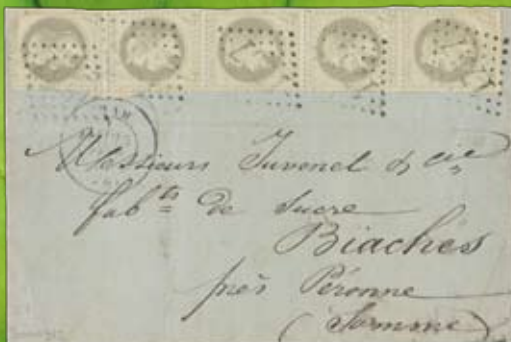 Messieurs Juvenel & Cie
fabts de Sucre
Biaches
près Péronne
(Somme)